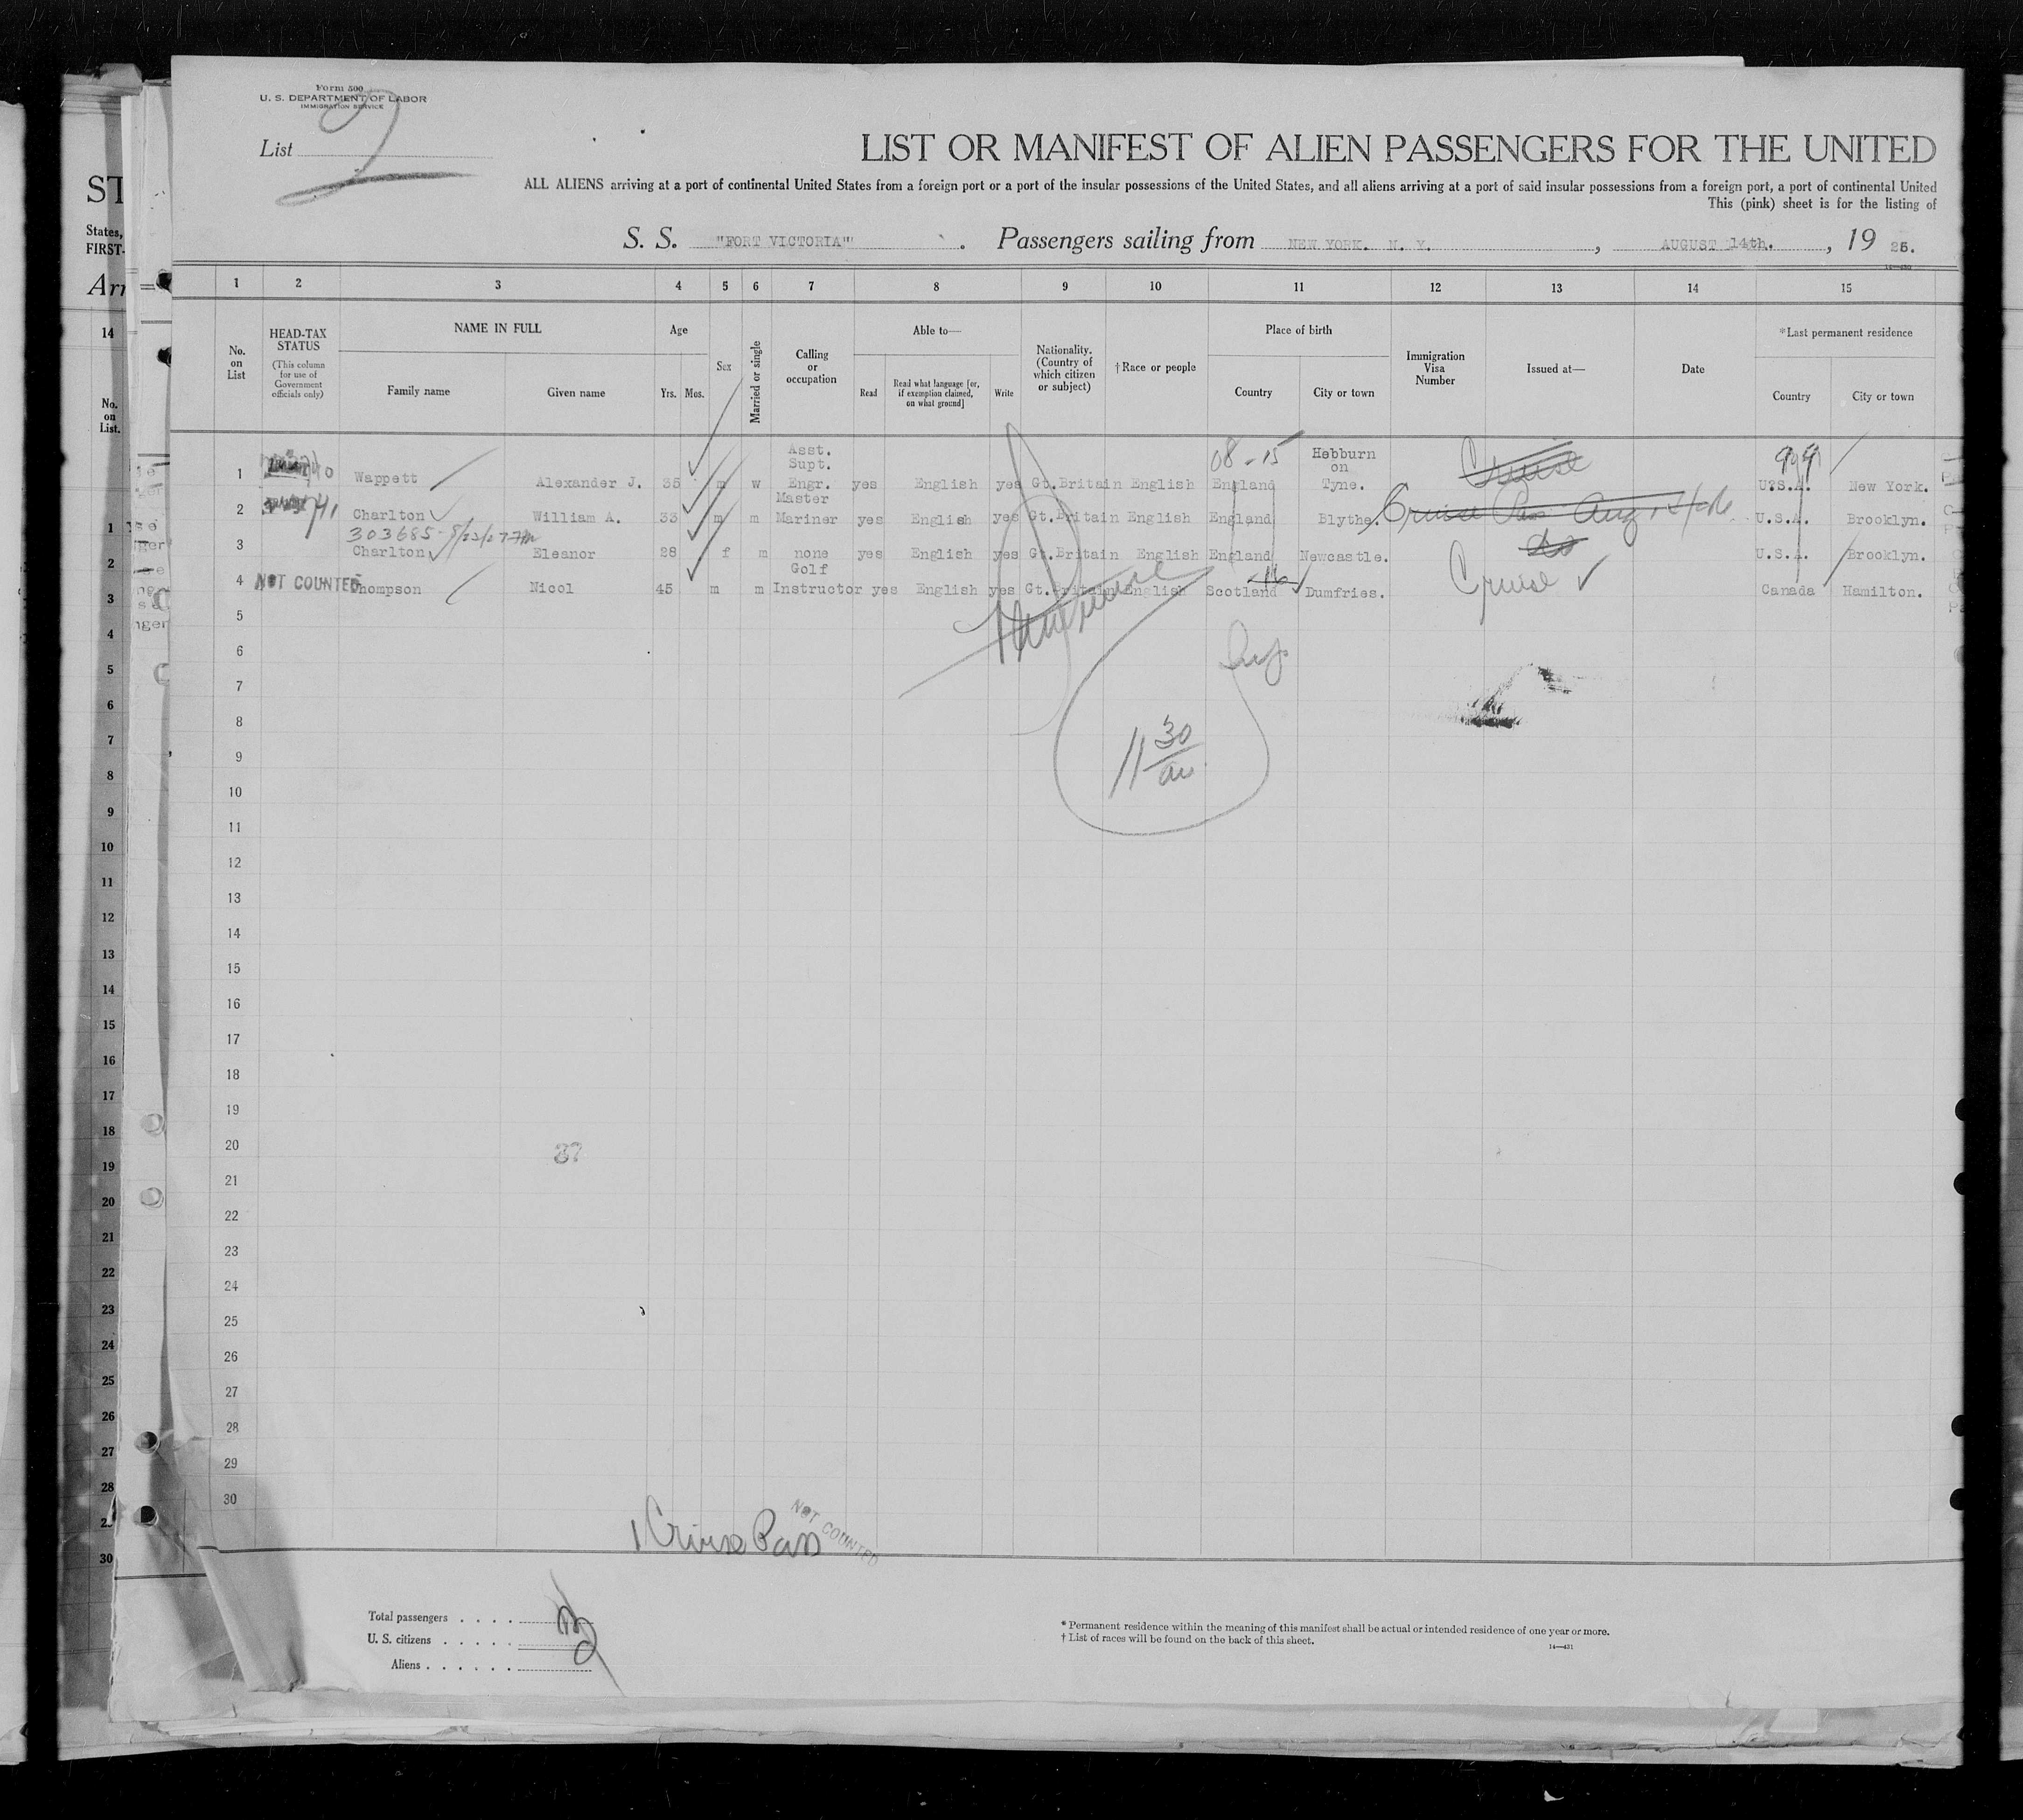 Form 500
U. S. DEPARTMENT OF LABOR
IMMIGRATION SERVICE
List
LIST OR MANIFEST OF ALIEN PASSENGERS FOR THE UNITED
ALL ALIENS arriving at a port of continental United States from a foreign port or a port of the insular possessions of the United States, and all aliens arriving at a port of said insular possessions from a foreign port, a port of continental United
This (pink) sheet is for the listing of
S. S. "FORT VICTORIA" . Passengers sailing from NEW YORK. N. Y. , AUGUST 14th. , 19 25.
1 2 3 4 5 6 7 8 9 10 11 12 13 14 15
No. on List
HEAD-TAX STATUS
(This column for use of Government officials only)
NAME IN FULL
Family name Given name
Age
Yrs. Mos.
Sex
Married or single
Calling or occupation
Able to—
Read Read what language [or, if exemption claimed, on what ground] Write
Nationality. (Country of which citizen or subject)
†Race or people
Place of birth
Country City or town
Immigration Visa Number
Issued at—
Date
*Last permanent residence
Country City or town
1 Wappett Alexander J. 35 m w Asst. Supt. Engr. yes English yes Gt.Britain English England Hebburn on Tyne. Cruise U.S.A. New York.
08-15
2 Charlton William A. 33 m m Master Mariner yes English yes Gt.Britain English England Blythe. Cruise Pass Aug U.S.A. Brooklyn.
303685
3 Charlton Eleanor 28 f m none yes English yes Gt.Britain English England Newcastle. do U.S.A. Brooklyn.
4 NOT COUNTED Thompson Nicol 45 m m Golf Instructor yes English yes Gt.Britain English Scotland Dumfries. Cruise Canada Hamilton.
5
6
7
8
9
11 30 am
10
11
12
13
14
15
16
17
18
19
20
21
22
23
24
25
26
27
28
29
30
1 Cruise Pass NOT COUNTED
Total passengers
U. S. citizens
Aliens
* Permanent residence within the meaning of this manifest shall be actual or intended residence of one year or more.
† List of races will be found on the back of this sheet.
14—431
ST
States,
FIRST-
Arr
14
No. on List.
1
2
3
4
5
6
7
8
9
10
11
12
13
14
15
16
17
18
19
20
21
22
23
24
25
26
27
28
30